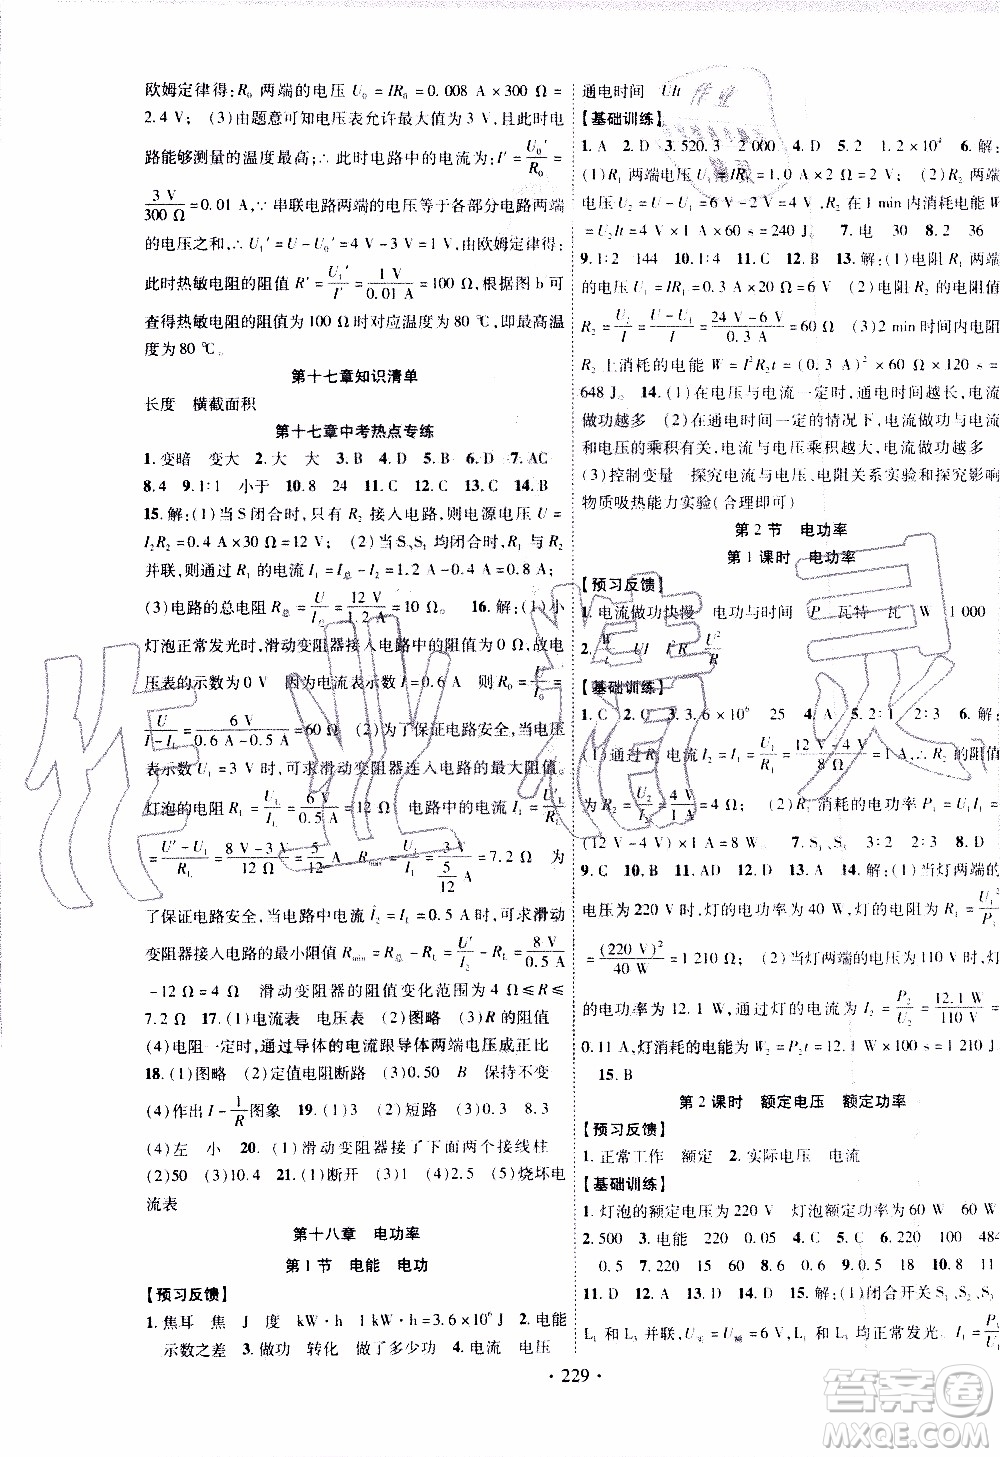 欧姆定律得:R₀ 两端的电压 U₀ = IR₀ = 0.008 A×300 Ω=
2.4 V (3)由题意可知电压表允许最大值为 3 V,此时电
路能够测量的温度最高:∴ 此时电路中的电流为:I' = U₀'/R₀ =
3 V/300 Ω = 0.01 A,∵ 串联电路两端的电压等于各部分电路两端
的电压之和,∴ U₁' = U − U₀' = 4 V − 3 V = 1 V,由欧姆定律得:
此时热敏电阻的阻值 R' = U₁'/I' = 1 V/0.01 A = 100 Ω,由图 b 可
查得热敏电阻的阻值为 100 Ω 时对应温度为 80 ℃,即最高温
度为 80 ℃。
第十七章知识清单
长度 横截面积
第十七章中考热点专练
1.变暗 变大 2.大 大 3.B 4.D 5.D 6.D 7.AC
8.4 9.1∶1 小于 10.8 24 11.C 12.C 13.C 14.B
15.解:(1)当 S 闭合时,只有 R₂ 接入电路,则电源电压 U =
I₂R₂ = 0.4 A×30 Ω=12 V (2)当 S、S₁ 均闭合时,R₁ 与 R₂
并联,则通过 R₁ 的电流 I₁ = I总 − I₂ = 1.2 A − 0.4 A = 0.8 A
(3)电路的总电阻 R总 = U/I总 = 12 V/1.2 A = 10 Ω 16.解:(1)小
灯泡正常发光时,滑动变阻器接入电路中的阻值为 0 Ω,故电
压表的示数为 0 V 因为电流表示数 I = 0.6 A 则 R₀ = U/I₀ =
U/(I−I_L) = 6 V/(0.6 A−0.5 A) = 60 Ω (2)为了保证电路安全,当电压
表示数 U₁ = 3 V 时,可求滑动变阻器连入电路的最大阻值。
灯泡的电阻 R_L = U_L/I_L = 6 V/0.5 A = 12 Ω 电路中的电流 I₁ = U'_L/R_L
= (U'−U₁)/R_L = (8 V−3 V)/12 Ω = 5/12 A R_max = U₁/I₁ = 3 V/(5/12 A) = 7.2 Ω 为
了保证电路安全,当电路中电流 I₂ = I_L = 0.5 A 时,可求滑动
变阻器接入电路的最小阻值 R_min = R总 − R_L = U'/I₂ − R_L = 8 V/0.5 A
−12 Ω=4 Ω 滑动变阻器的阻值变化范围为 4 Ω≤R≤
7.2 Ω 17.(1)电流表 电压表 (2)图略 (3)R 的阻值
(4)电阻一定时,通过导体的电流跟导体两端电压成正比
18.(1)图略 (2)定值电阻断路 (3)0.50 B 保持不变
(4)作出 I−1/R 图象 19.(1)3 (2)短路 (3)0.3 8.3
(4)左 小 20.(1)滑动变阻器接了下面两个接线柱
(2)50 (3)10.4 21.(1)断开 (4)2.5 (5)烧坏电
流表
第十八章 电功率
第 1 节 电能 电功
【预习反馈】
1.焦耳 焦 J 度 kW·h 1 kW·h=3.6×10⁶ J 2.电能
示数之差 3.做功 转化 做了多少功 4.电流 电压
通电时间 UIt
【基础训练】
1.A 2.D 3.520.3 2 000 4.D 5.1.2×10⁴ 6.解:
(1)R₁ 两端电压 U₁ = IR₁ = 1.0 A×2 Ω=2 V (2)R₂ 两端
电压 U₂ = U − U₁ = 6 V − 2 V = 4 V,R₂ 在 1 min 内消耗电能 W
= U₂It = 4 V×1 A×60 s = 240 J 7.电 30 8.2 36
9.1∶2 144 10.B 11.C 12.B 13.解:(1)电阻 R₁ 两端
的电压 U₁ = IR₁ = 0.3 A×20 Ω=6 V (2)电阻 R₂ 的阻值
R₂ = U₂/I = (U−U₁)/I = (24 V−6 V)/0.3 A = 60 Ω (3)2 min 时间内电阻
R₂ 上消耗的电能 W = I²R₂t = (0.3 A)²×60 Ω×120 s =
648 J 14.(1)在电压与电流一定时,通电时间越长,电流
做功越多 (2)在通电时间一定的情况下,电流做功与电流
和电压的乘积有关,电流与电压乘积越大,电流做功越多
(3)控制变量 探究电流与电压、电阻关系实验和探究影响
物质吸热能力实验(合理即可)
第 2 节 电功率
第 1 课时 电功率
【预习反馈】
1.电流做功快慢 电功与时间 P 瓦特 瓦 W 1 000
2.W/t UI I²R U²/R
【基础训练】
1.C 2.C 3.3.6×10⁶ 25 4.A 5.2∶1 2∶1 6.解:
(1)通过 R₁ 电流 I₁ = I = U₁/R₁ = (12 V−4 V)/8 Ω = 1 A,R₂ 的阻值
为 R₂ = U₂/I = 4 V/1 A = 4 Ω (2)R₁ 消耗的电功率 P₁ = U₁I₁
(12 V−4 V)×1 A=8 W 7.S₁ S₁、S₃ 8.D
9.C 10.B 11.AD 12.A 13.A 14.解:(1)当灯两端的
电压为 220 V 时,灯的电功率为 40 W,灯的电阻为 R₁ = U₁²/P₁
= (220 V)²/40 W = 1 210 Ω (2)当灯两端的电压为 110 V 时,灯
的电功率为 12.1 W,通过灯的电流为 I₂ = P₂/U₂ = 12.1 W/110 V =
0.11 A,灯消耗的电能为 W₂ = P₂t = 12.1 W×100 s = 1 210 J
15.B
第 2 课时 额定电压 额定功率
【预习反馈】
1.正常工作 额定 2.实际电压 电流
【基础训练】
1.灯泡的额定电压为 220 V 灯泡额定功率为 60 W 60 W
2.500 3.电能 220 0.05 4.A 5.C 6.220 100 484
0.5 15 7.220 0.5 8.A 9.D 10.B
11.D 12.D 13.C 14.A 15.解:(1)闭合开关 S₁、S₂、S₃
L₁ 和 L₃ 并联,U实 = U额 = 6 V,L₁ 和 L₃ 均正常发光 I₁ = P₁/U₁
· 229 ·
作业精灵
答案圈
MXQE.COM